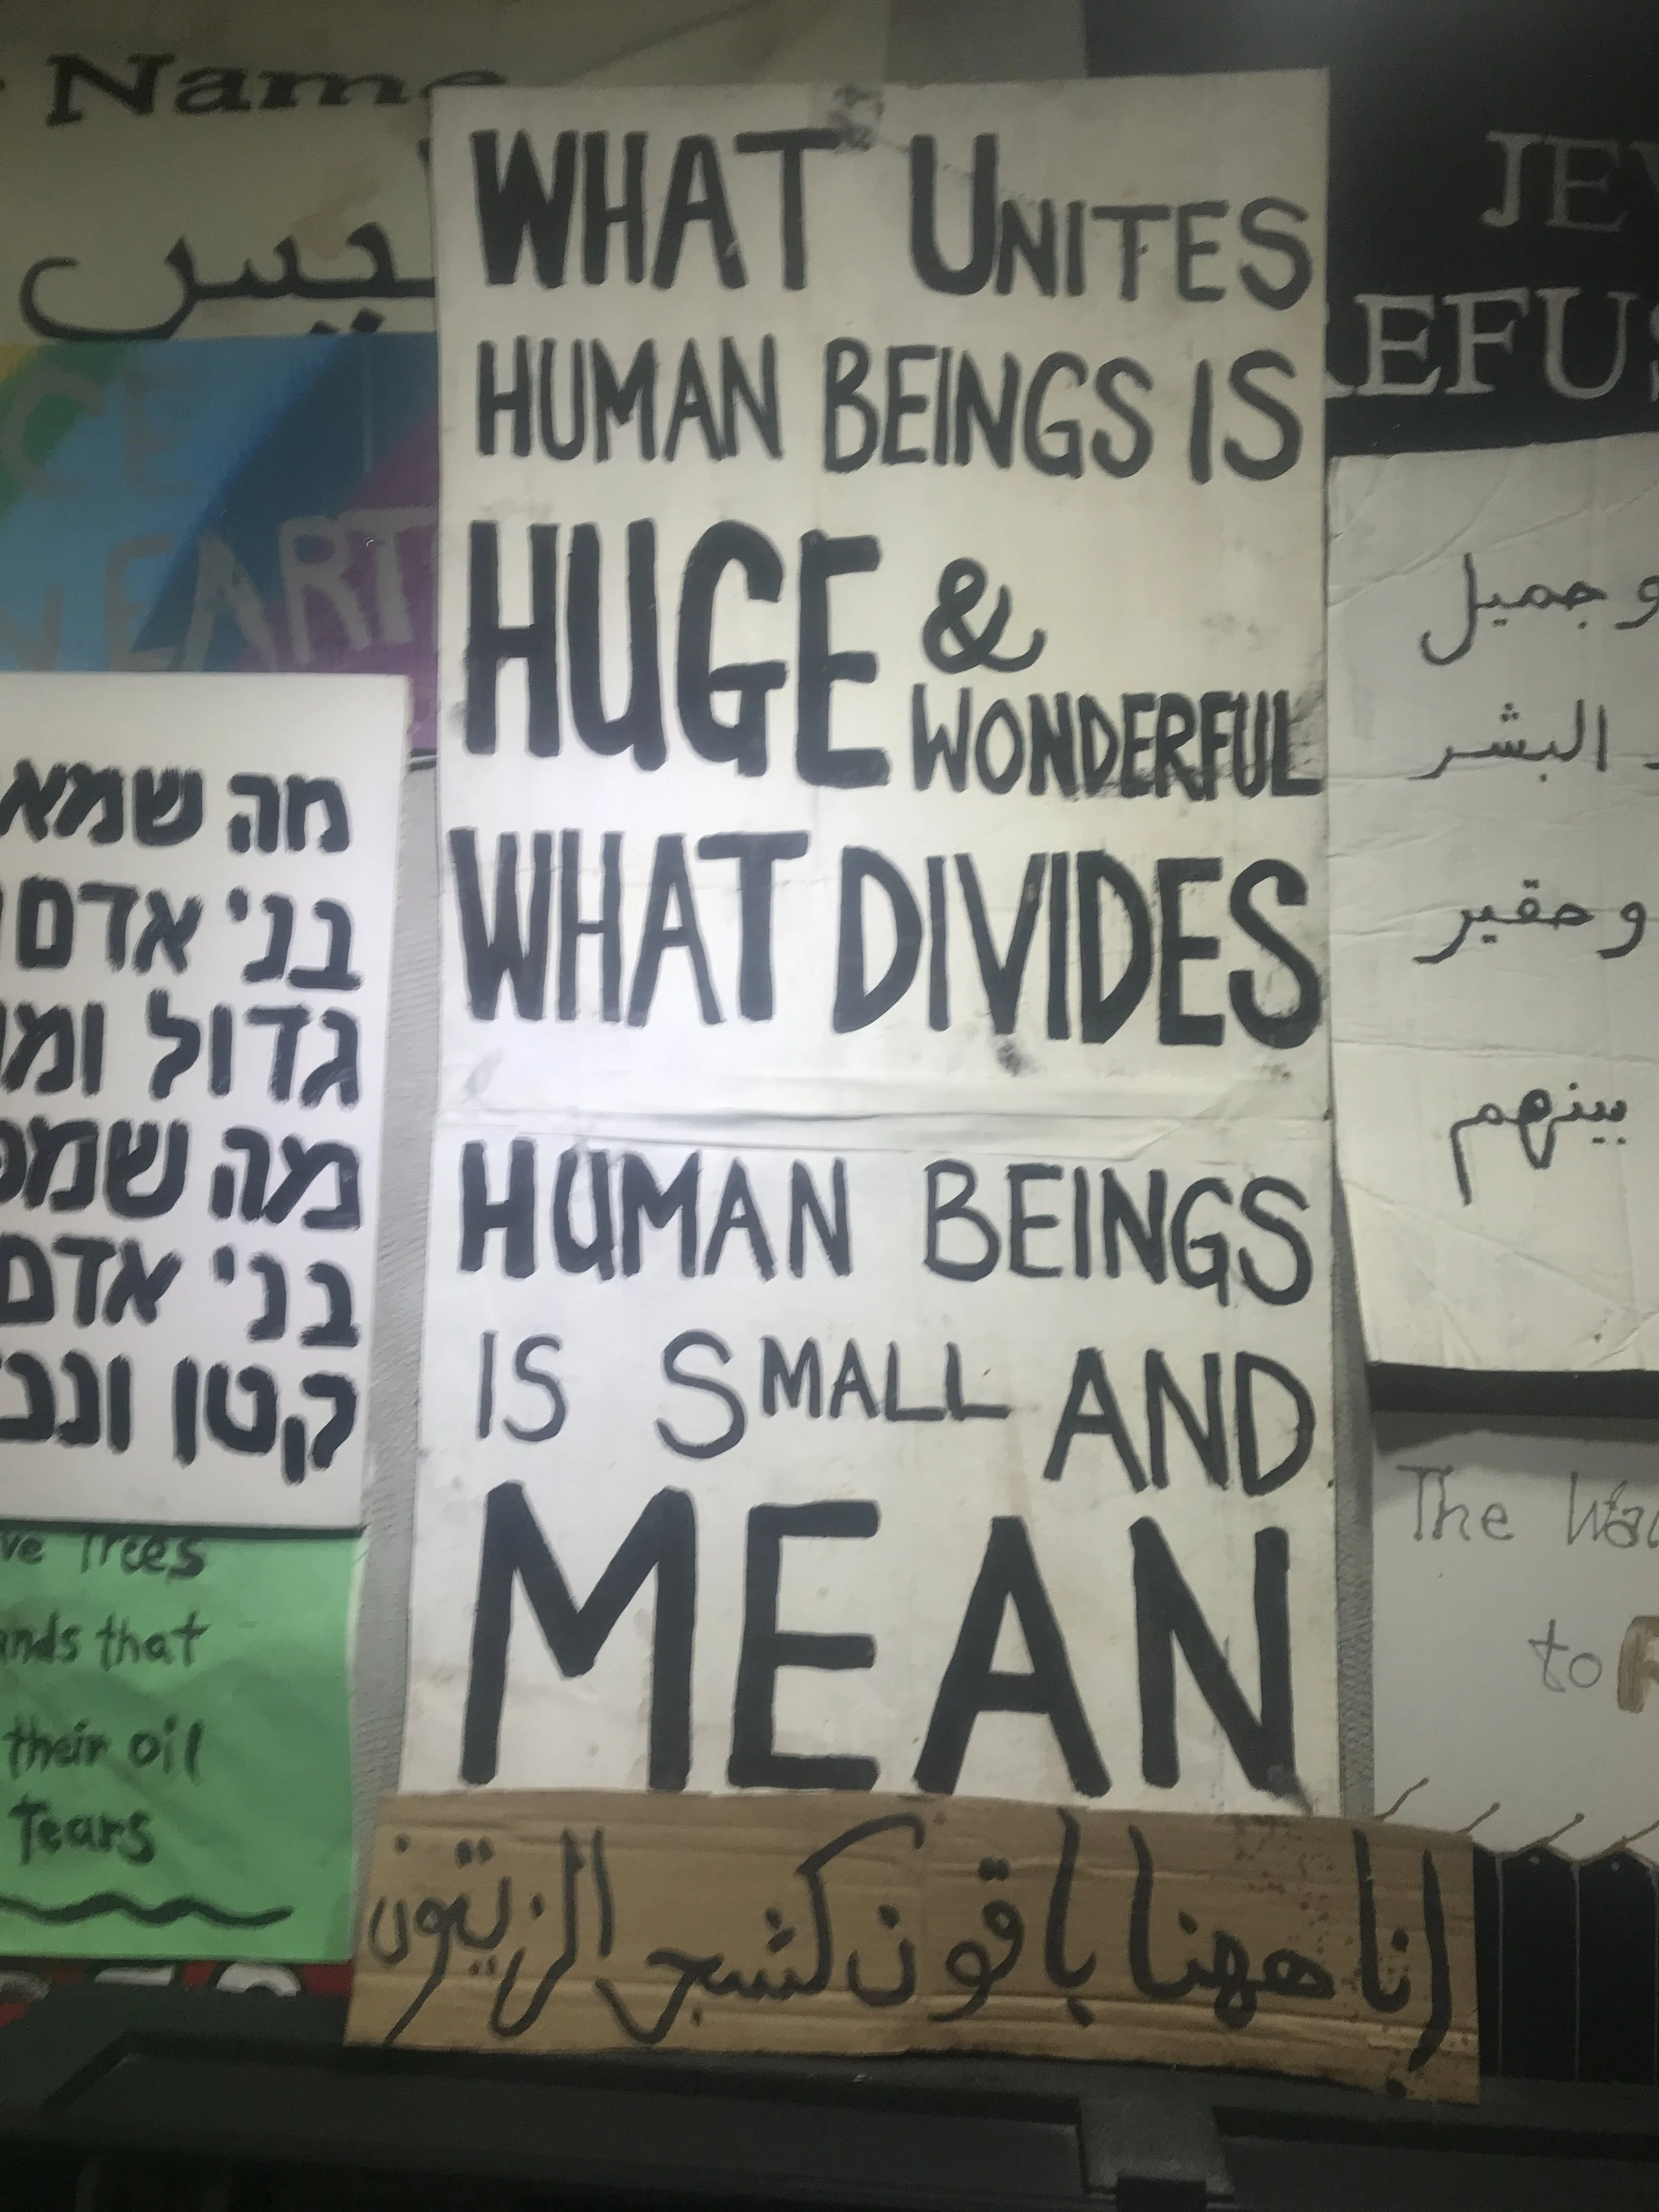 Name
JE
EFUS
WHAT UNITES
HUMAN BEINGS IS
HUGE &
WONDERFUL
WHAT DIVIDES
HUMAN BEINGS
IS SMALL AND
MEAN
انا ههنا باقون كشجر الزيتون
EART
מה שמא
בני אדם
גדול ומ
מה שמפ
בני אדם
קטן ונב
ve Trees
ands that
their oil
Tears
و جميل
البشر
و حقير
بينهم
The Wa
to